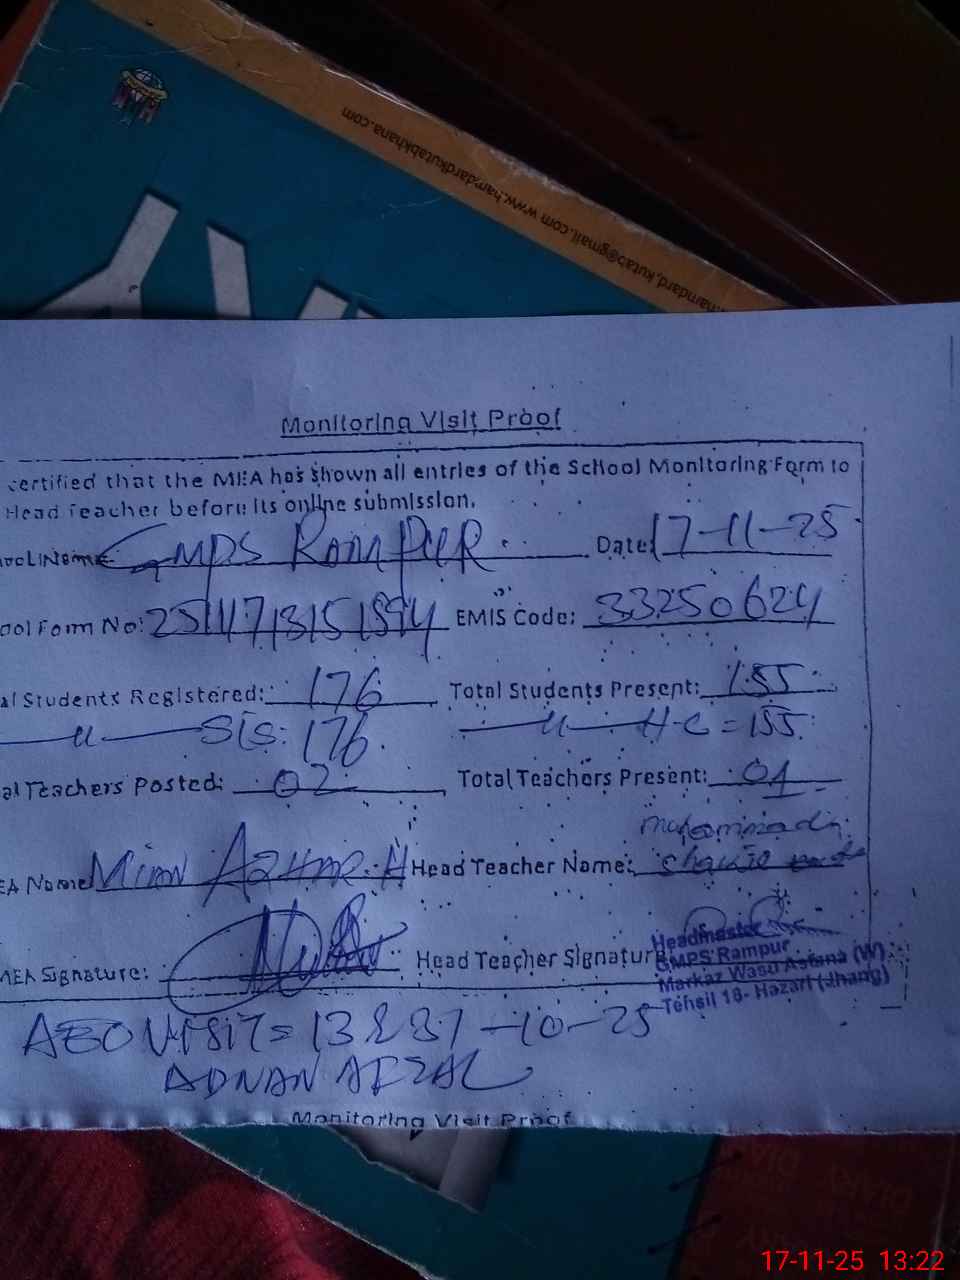 www.hamdardkutabkhana.com
hamdard.kutab@gmail.com
Monitoring Visit Proof
certified that the MEA has shown all entries of the School Monitoring Form to
Head Teacher before its online submission.
ool Name GMPS RamPUR Date 17-11-25
ool Form No: EMIS Code: 33250624
al Students Registered: 176 Total Students Present: 155
SIS: 176 H-C = 155
al Teachers Posted: 02 Total Teachers Present: 01
EA Name Mian AZHAR.H Head Teacher Name: Muhammad
MEA Signature: Head Teacher Signature
Headmaster
GMPS Rampur
Markaz Wasu Astana (W)
Tehsil 18- Hazari (Jhang)
AEO VISIT = 13 & 31 -10-25
ADNAN AFZAL
Monitoring Visit Proof
17-11-25 13:22